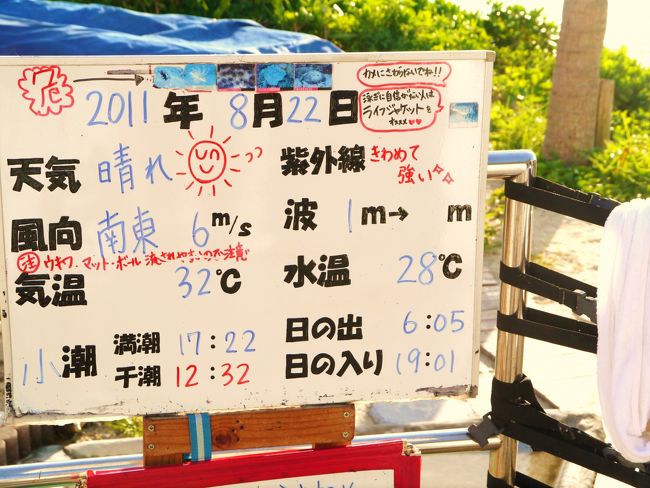 厄
カメにさわらないでね!!
2011年8月22日
泳ぎに自信がない人は
ライフジャケットを
天気 晴れ
紫外線 きわめて
強い
風向 南東 6m/s
波 1m→ m
注 ウキワ・マット・ボール 流されやすいので注意
気温 32℃
水温 28℃
小潮
満潮 17:22
干潮 12:32
日の出 6:05
日の入り 19:01